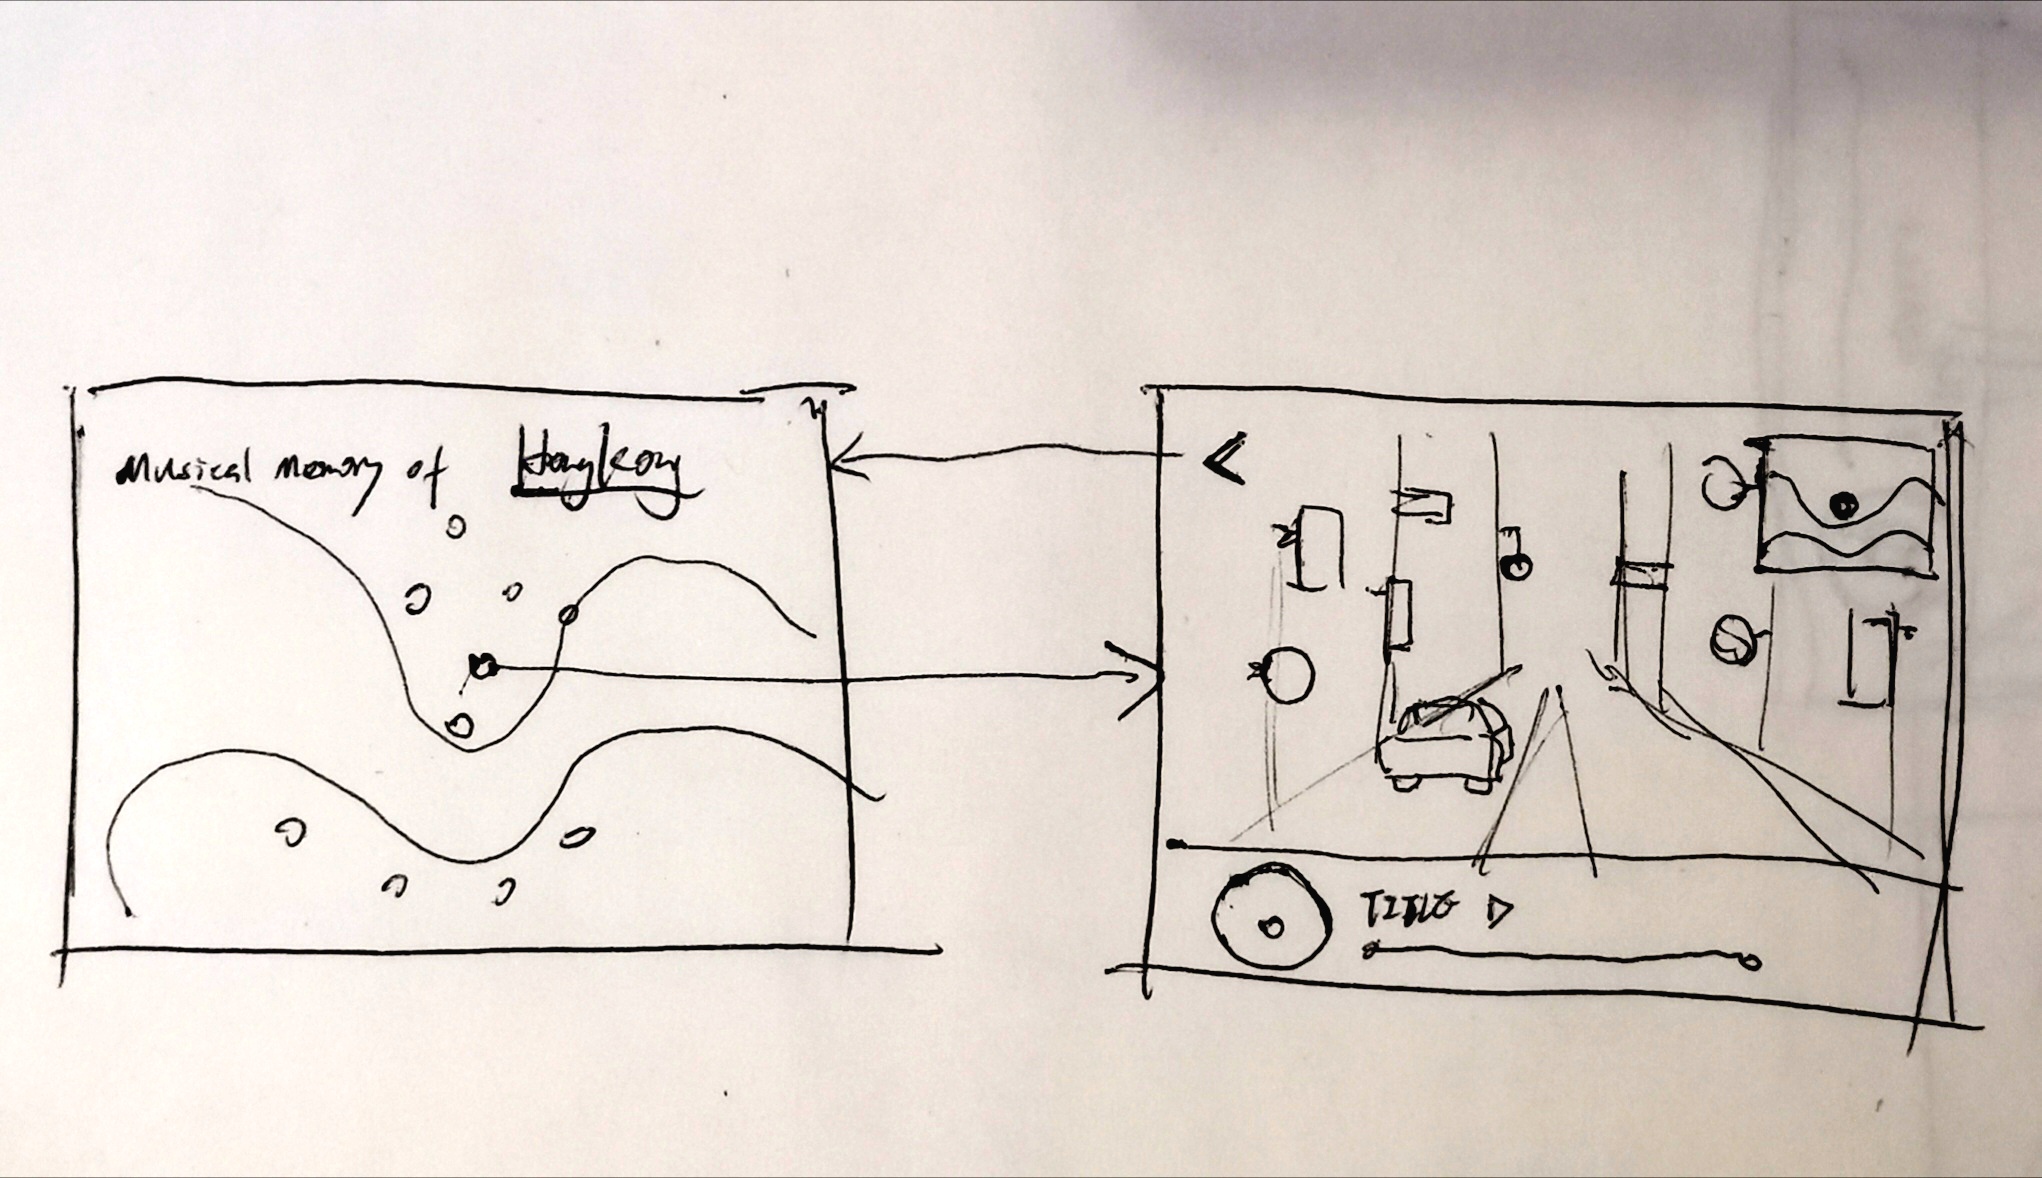 Musical memory of HongKong
TITLE